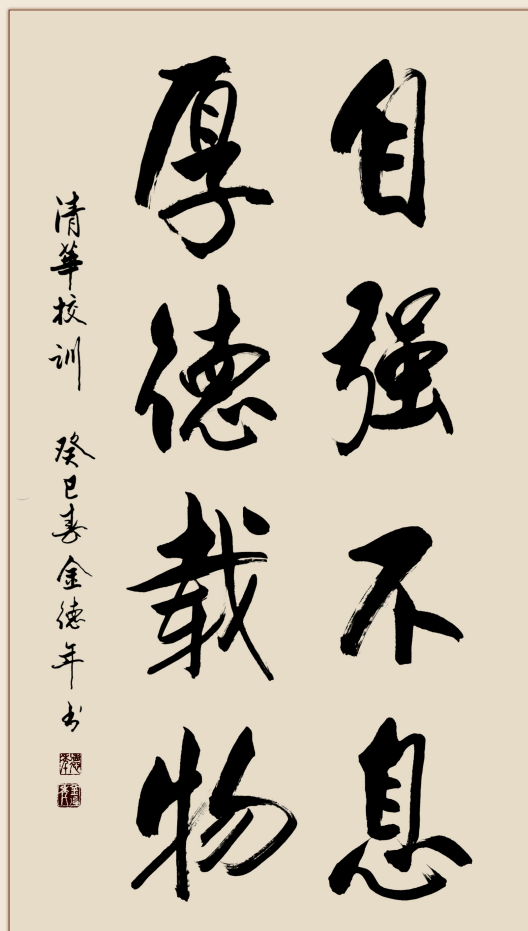 自强不息
厚德载物
清華校训 癸巳春金德年书